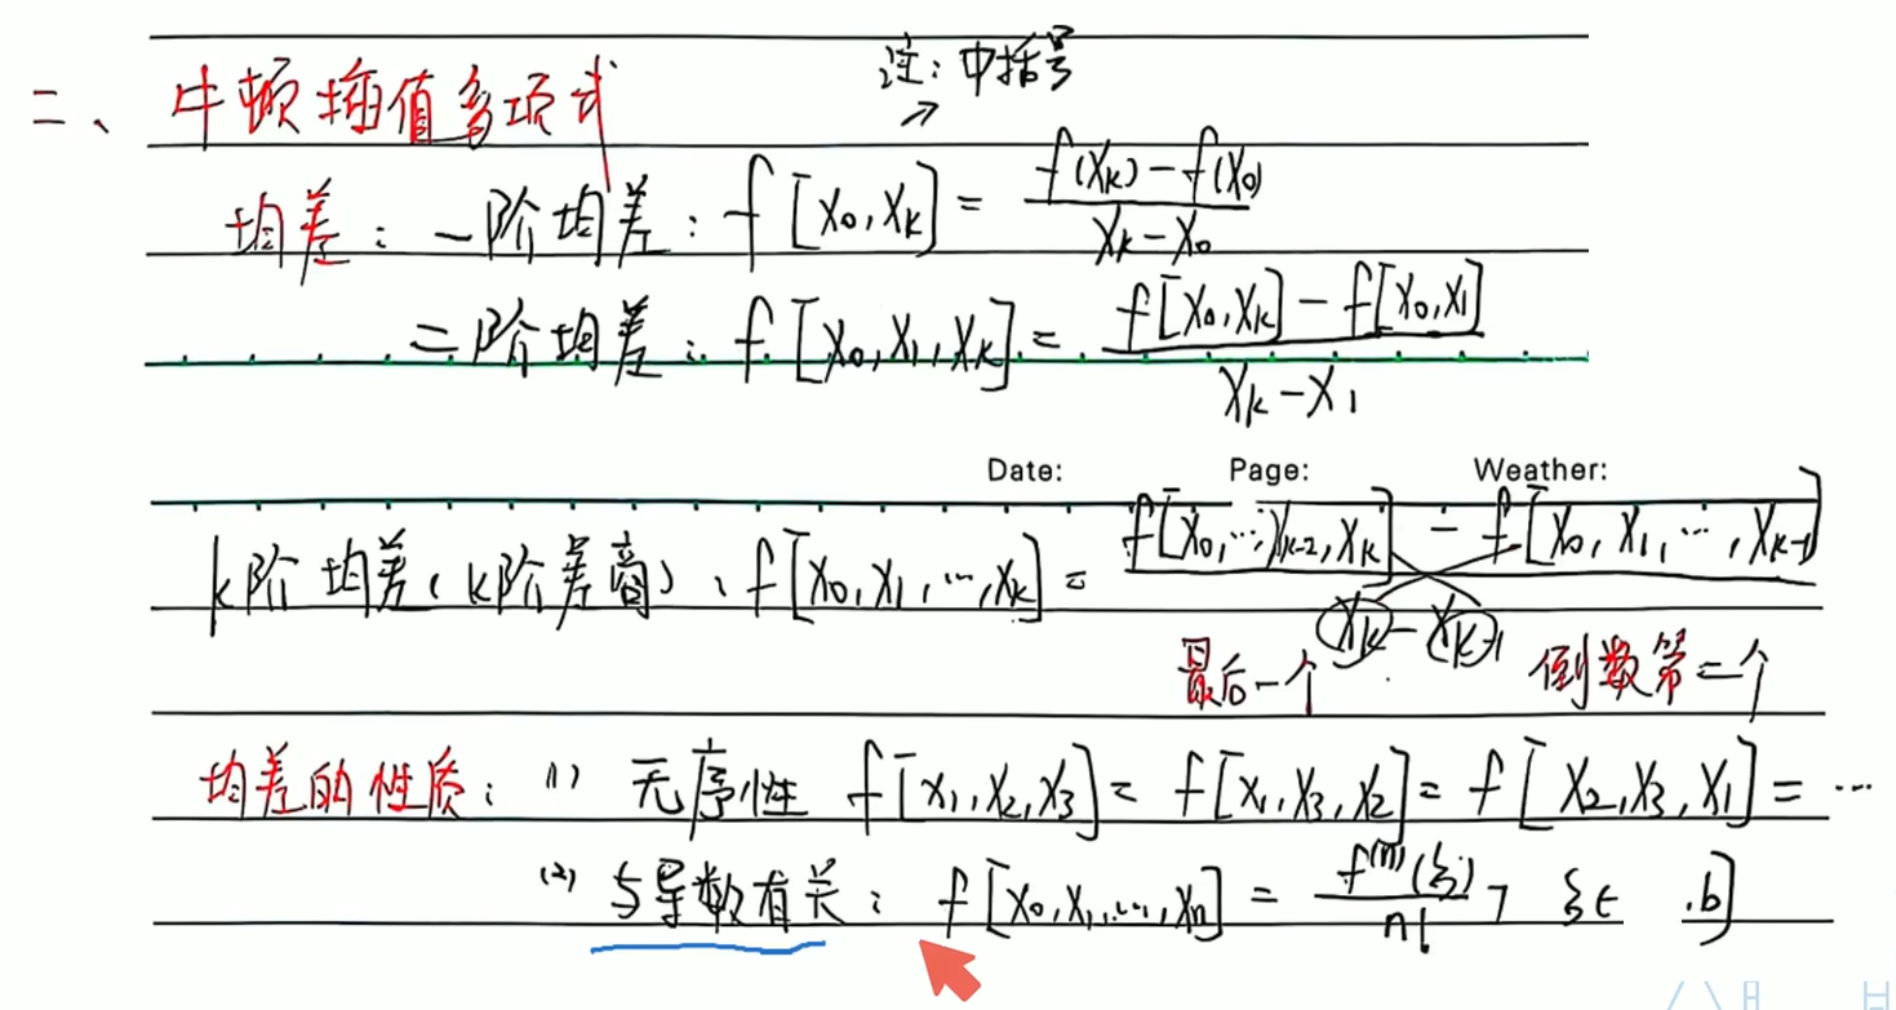 注：中括号
二、牛顿插值多项式
均差：一阶均差：f[x₀,xₖ] = (f(xₖ)-f(x₀))/(xₖ-x₀)
二阶均差：f[x₀,x₁,xₖ] = (f[x₀,xₖ]-f[x₀,x₁])/(xₖ-x₁)
Date: Page: Weather:
k阶均差(k阶差商)：f[x₀,x₁,…,xₖ] = (f[x₀,…,xₖ₋₂,xₖ] - f[x₀,x₁,…,xₖ₋₁])/(xₖ-xₖ₋₁)
最后一个 倒数第二个
均差的性质：(1) 无序性 f[x₁,x₂,x₃] = f[x₁,x₃,x₂] = f[x₂,x₃,x₁] = …
(2) 与导数有关：f[x₀,x₁,…,xₙ] = f⁽ⁿ⁾(ξ)/n! , ξ∈ ,b]